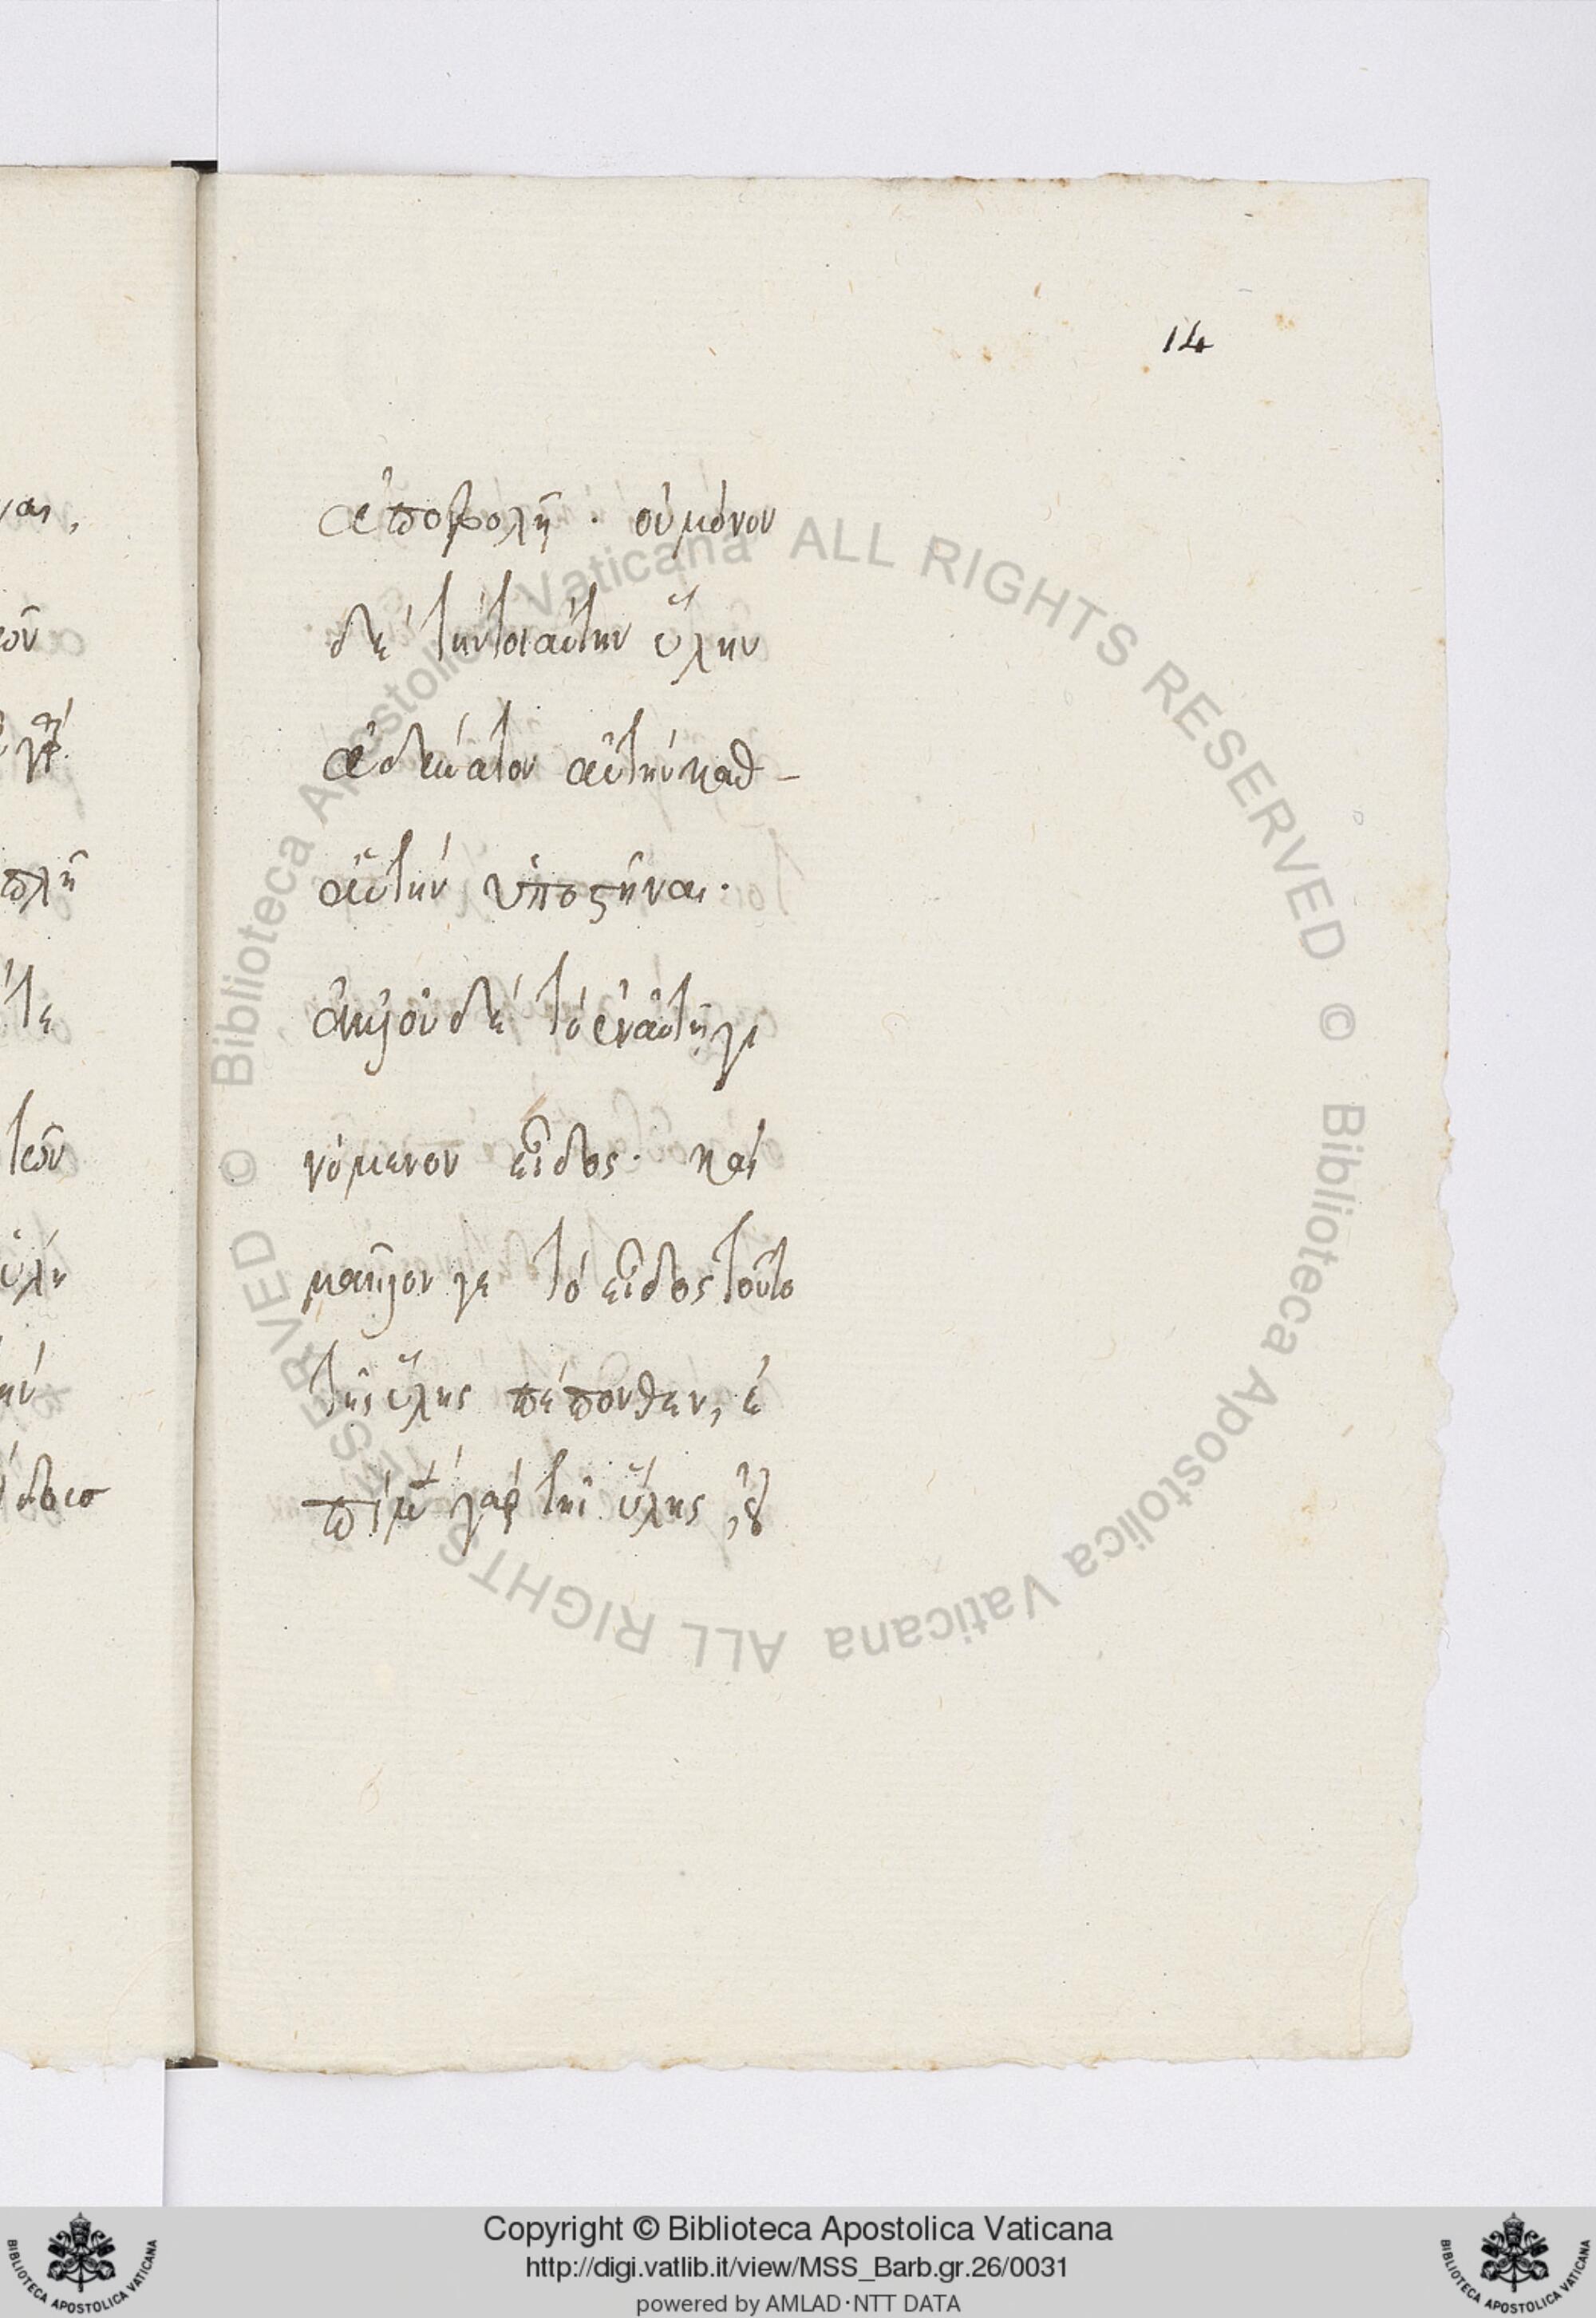 14
ἀποβολῇ · οὐ μόνον
δὲ τὴν τοιαύτην ὕλην
ἀδύνατον αὐτὴν καθ-
αὑτὴν ὑποστῆναι·
ἀλλ' οὐδὲ τὸ ἐν αὐτῇ γι
νόμενον εἶδος· καὶ
μᾶλλόν γε τὸ εἶδος τοῦτο
τῆς ὕλης πέπονθεν, ἐ
πὶ μὲν γὰρ τῆς ὕλης, οὐ
Copyright © Biblioteca Apostolica Vaticana
http://digi.vatlib.it/view/MSS_Barb.gr.26/0031
powered by AMLAD·NTT DATA
© Biblioteca Apostolica Vaticana ALL RIGHTS RESERVED © Biblioteca Apostolica Vaticana ALL RIGHTS RESERVED
BIBLIOTECA APOSTOLICA VATICANA
BIBLIOTECA APOSTOLICA VATICANA